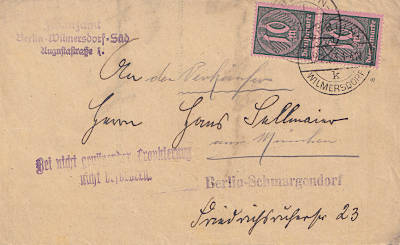 Finanzamt
Berlin-Wilmersdorf-Süd
Augustastraße
10
10
WILMERSDORF
k
An den Verkäufer
Herrn Hans Sellmaier
aus München
Bei nicht genügender Frankierung
nicht
Berlin-Schmargendorf
Friedrichsruherstr 23